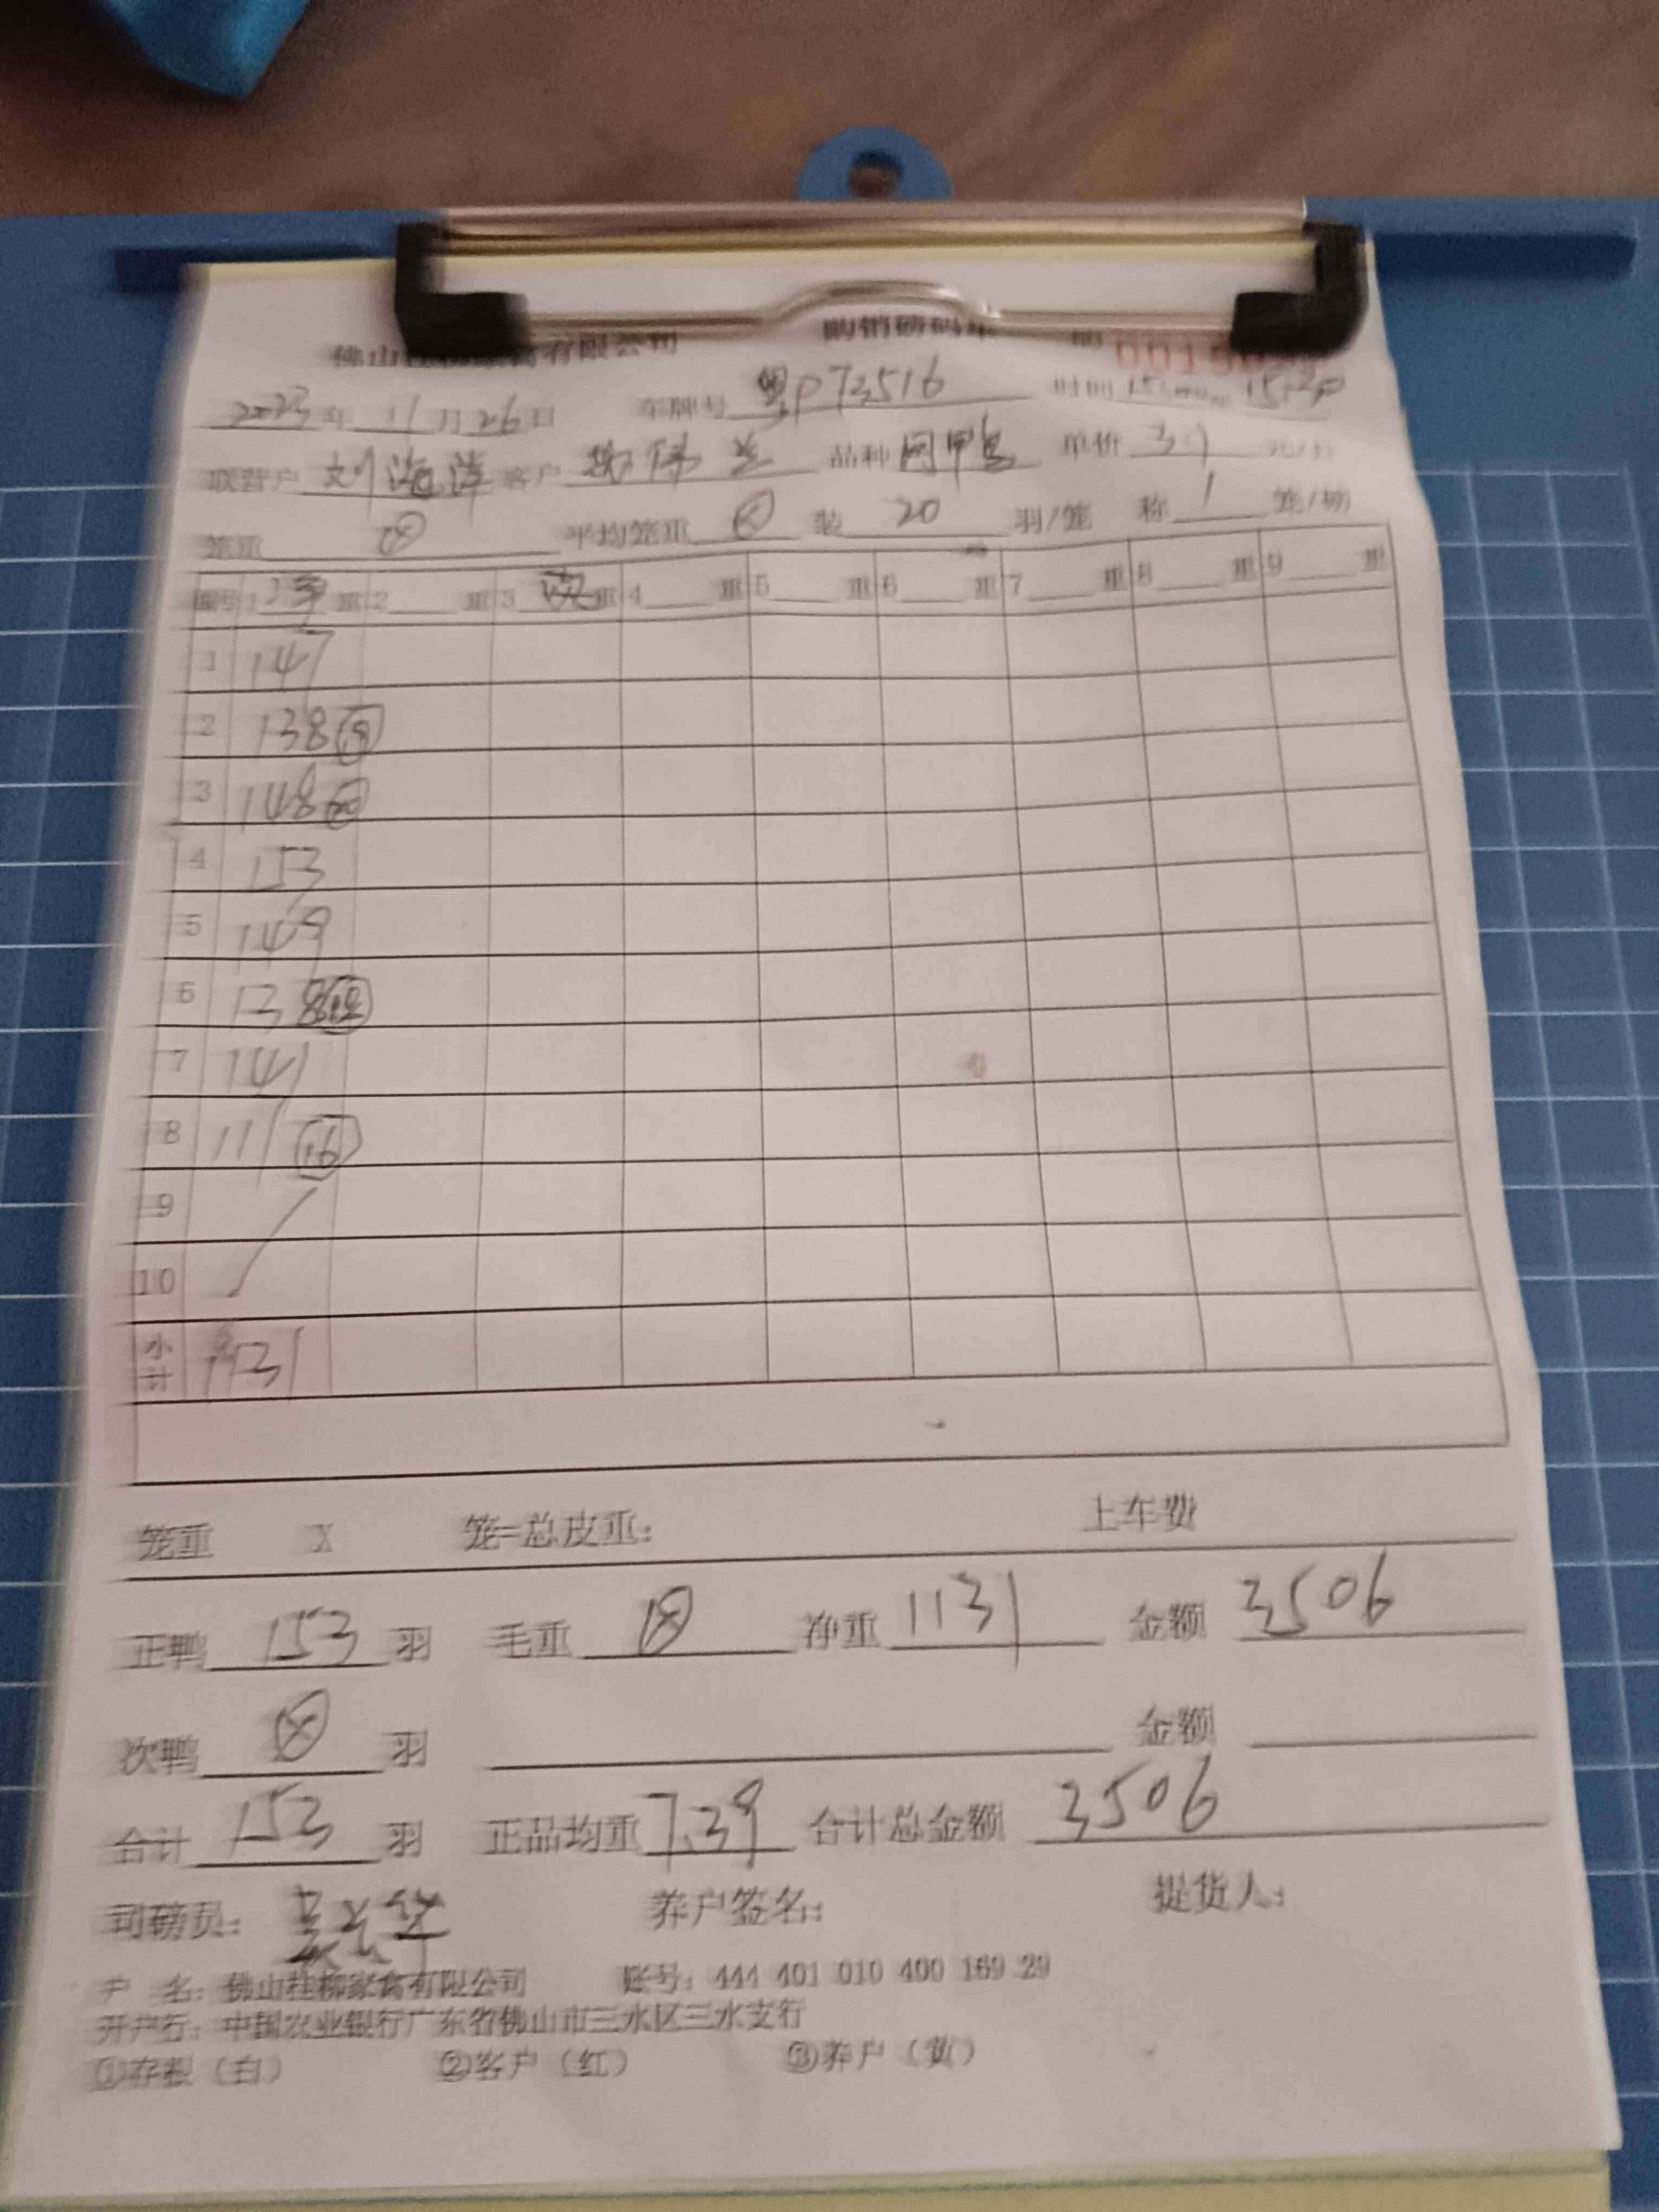 佛山桂柳家禽有限公司 购销磅码单
2023年 11月26日 车牌号 粤P73516 时间
联营户 刘海洋 客户 品种 单价 3.1 元/斤
笼重 ⊗ 平均笼重 ⊗ 装 20 羽/笼 称 1 笼/磅
编号 1 净 重 2 重 3 次 重 4 重 5 重 6 重 7 重 8 重 9 重
1 147
2 138
3 148
4 153
5 149
6 138
7 141
8 111 ⑯
9
10
小计 1131
笼重 X 笼=总皮重: 上车费
正鸭 153 羽 毛重 ⊗ 净重 1131 金额 3506
次鸭 ⊗ 羽 金额
合计 153 羽 正品均重 7.39 合计总金额 3506
司磅员: 养户签名: 提货人:
户 名: 佛山桂柳家禽有限公司 账号: 444 401 010 400 169 29
开户行: 中国农业银行广东省佛山市三水区三水支行
①存根（白） ②客户（红） ③养户（黄）